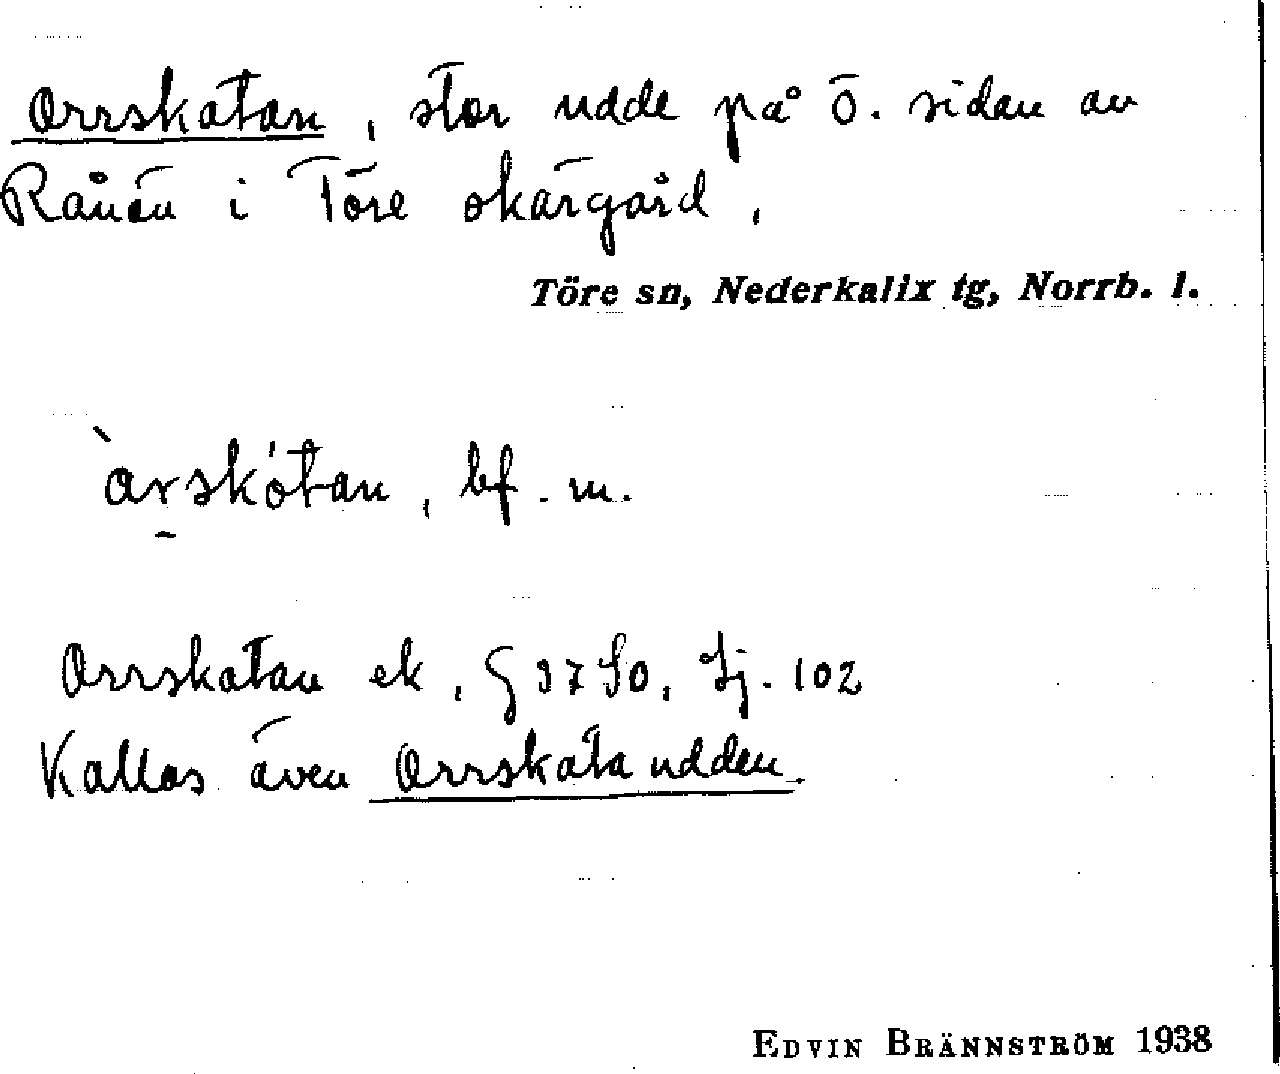 Orrskatan, stor udde på ö. sidan av
Rånön i Töre skärgård.
Töre sn, Nederkalix tg, Norrb. l.
`arskòtan, bf. m.
Orrskatan ek, G 37 So, Sj. 102
Kallas även Orrskataudden.
EDVIN BRÄNNSTRÖM 1938